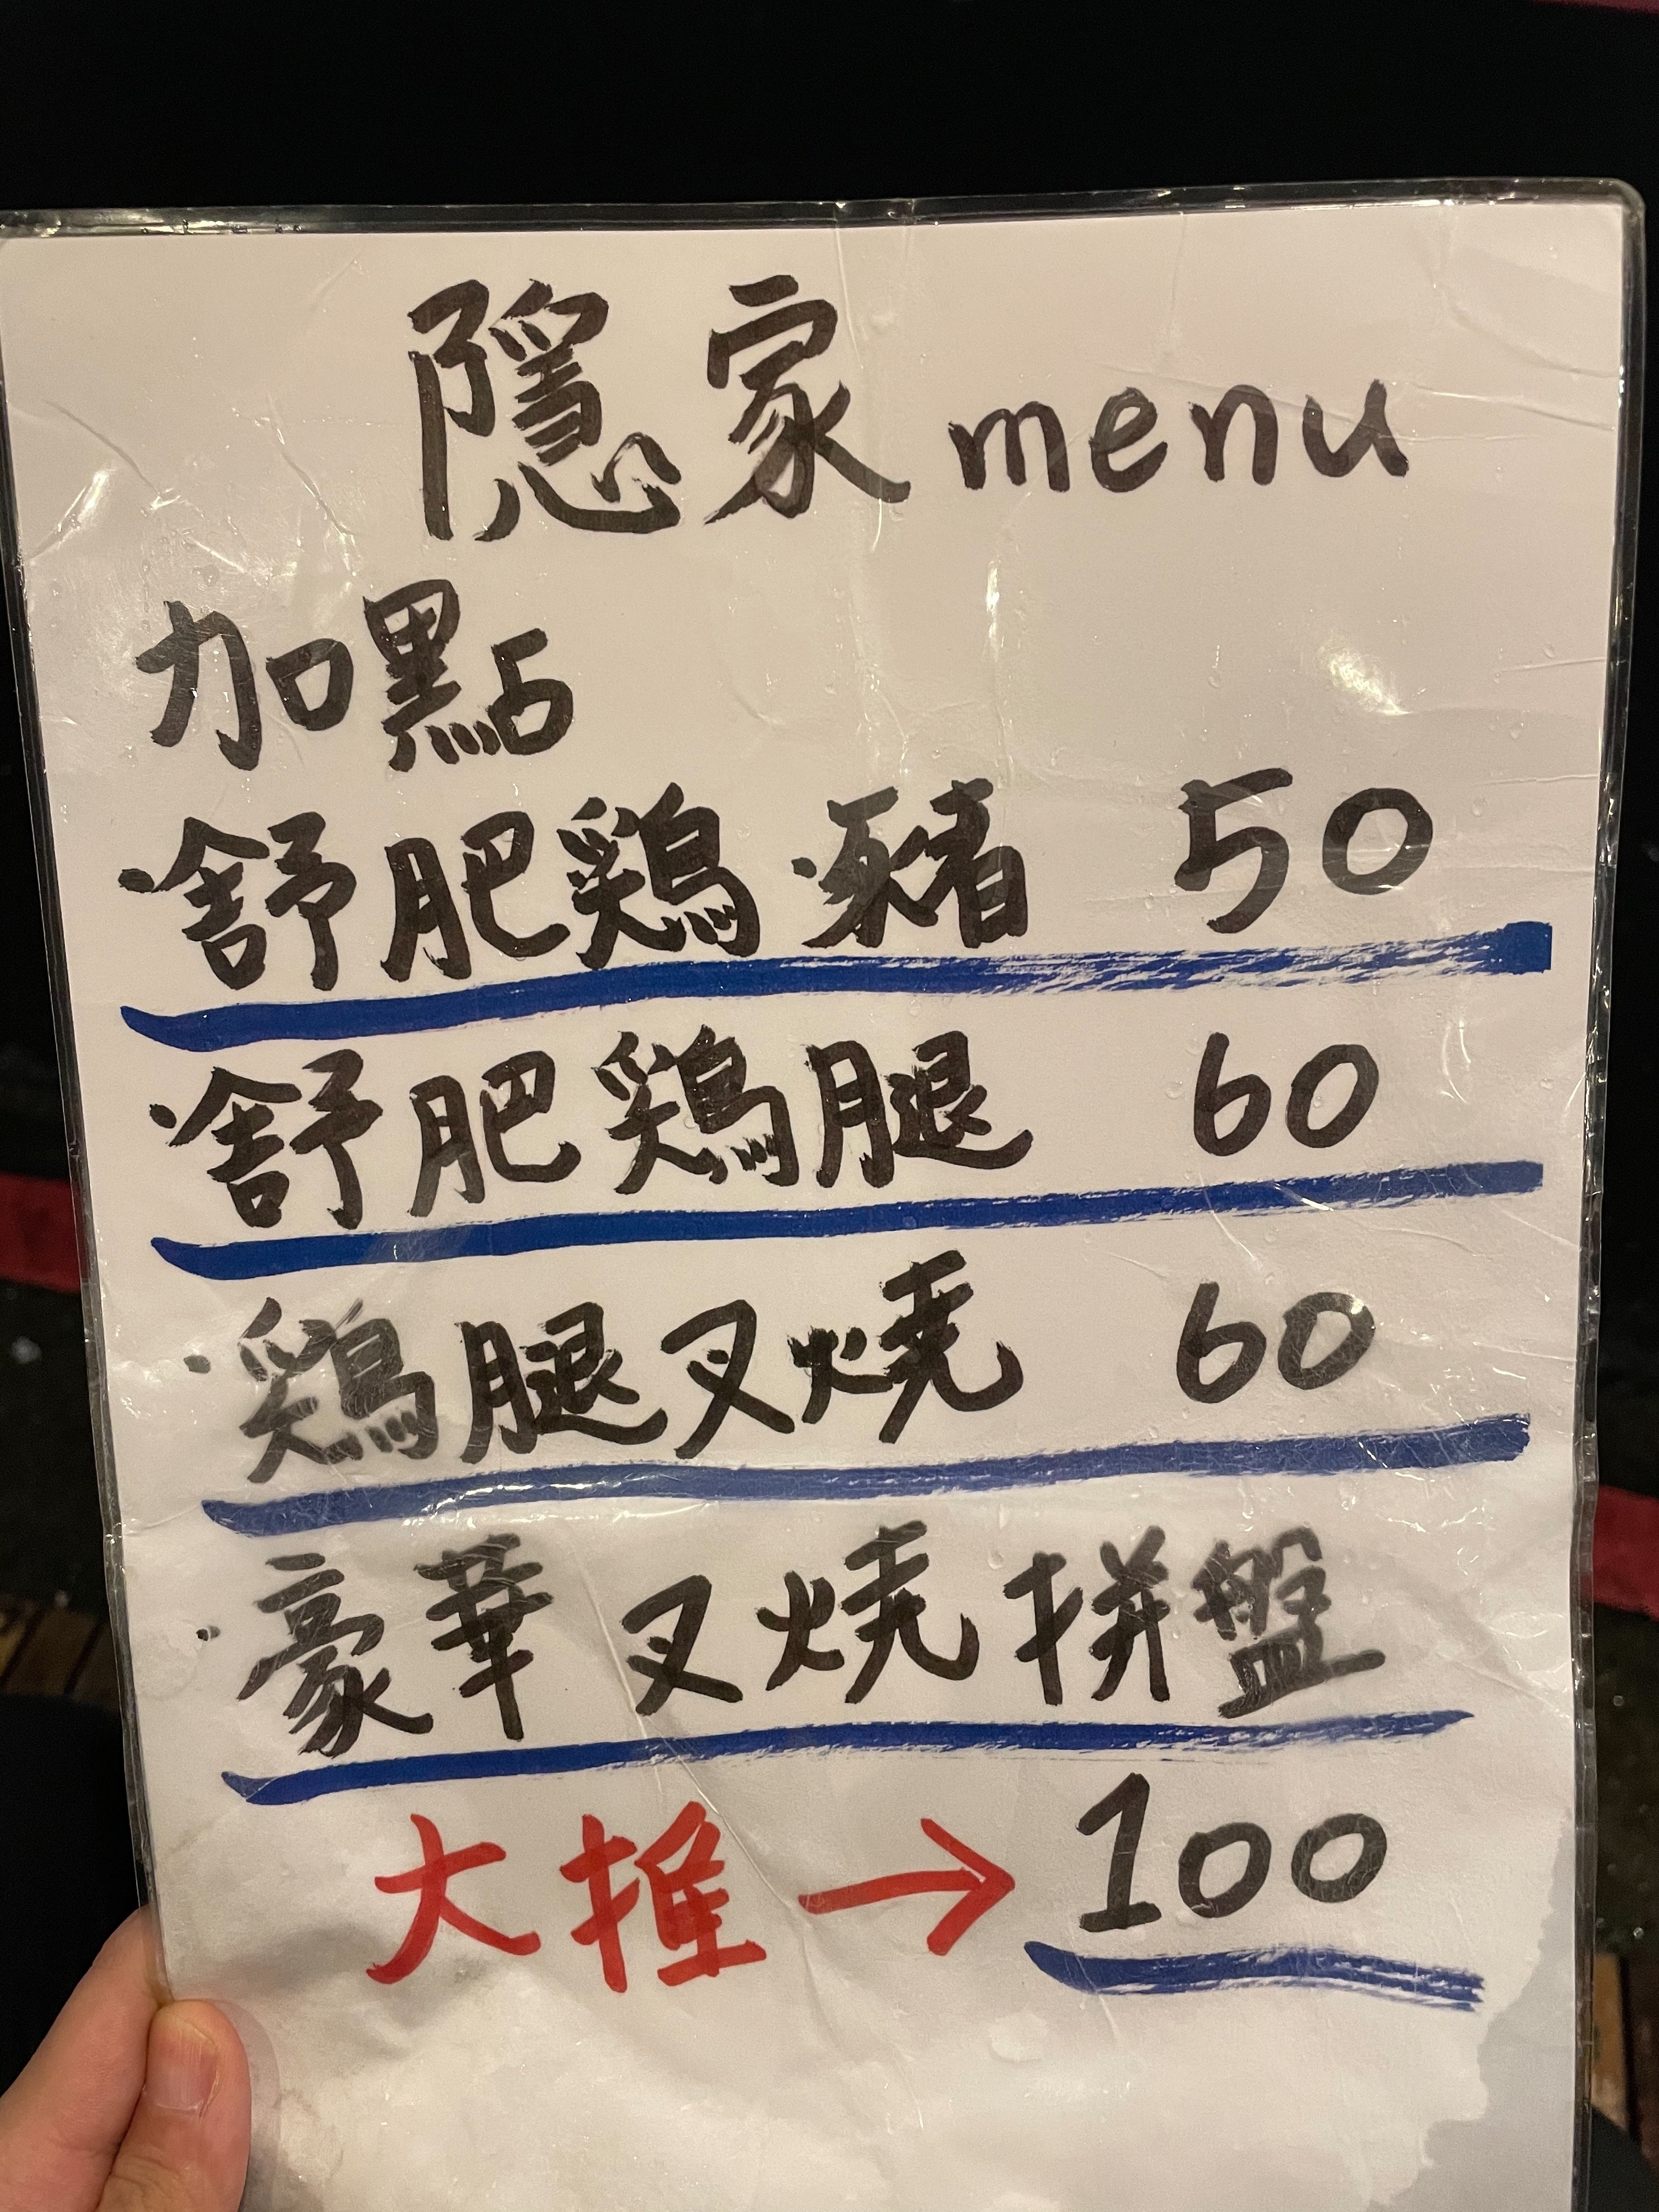 隱家menu
加點
·舒肥鶏豬 50
·舒肥鶏腿 60
·鶏腿叉燒 60
·豪華叉燒拼盤
大推→100